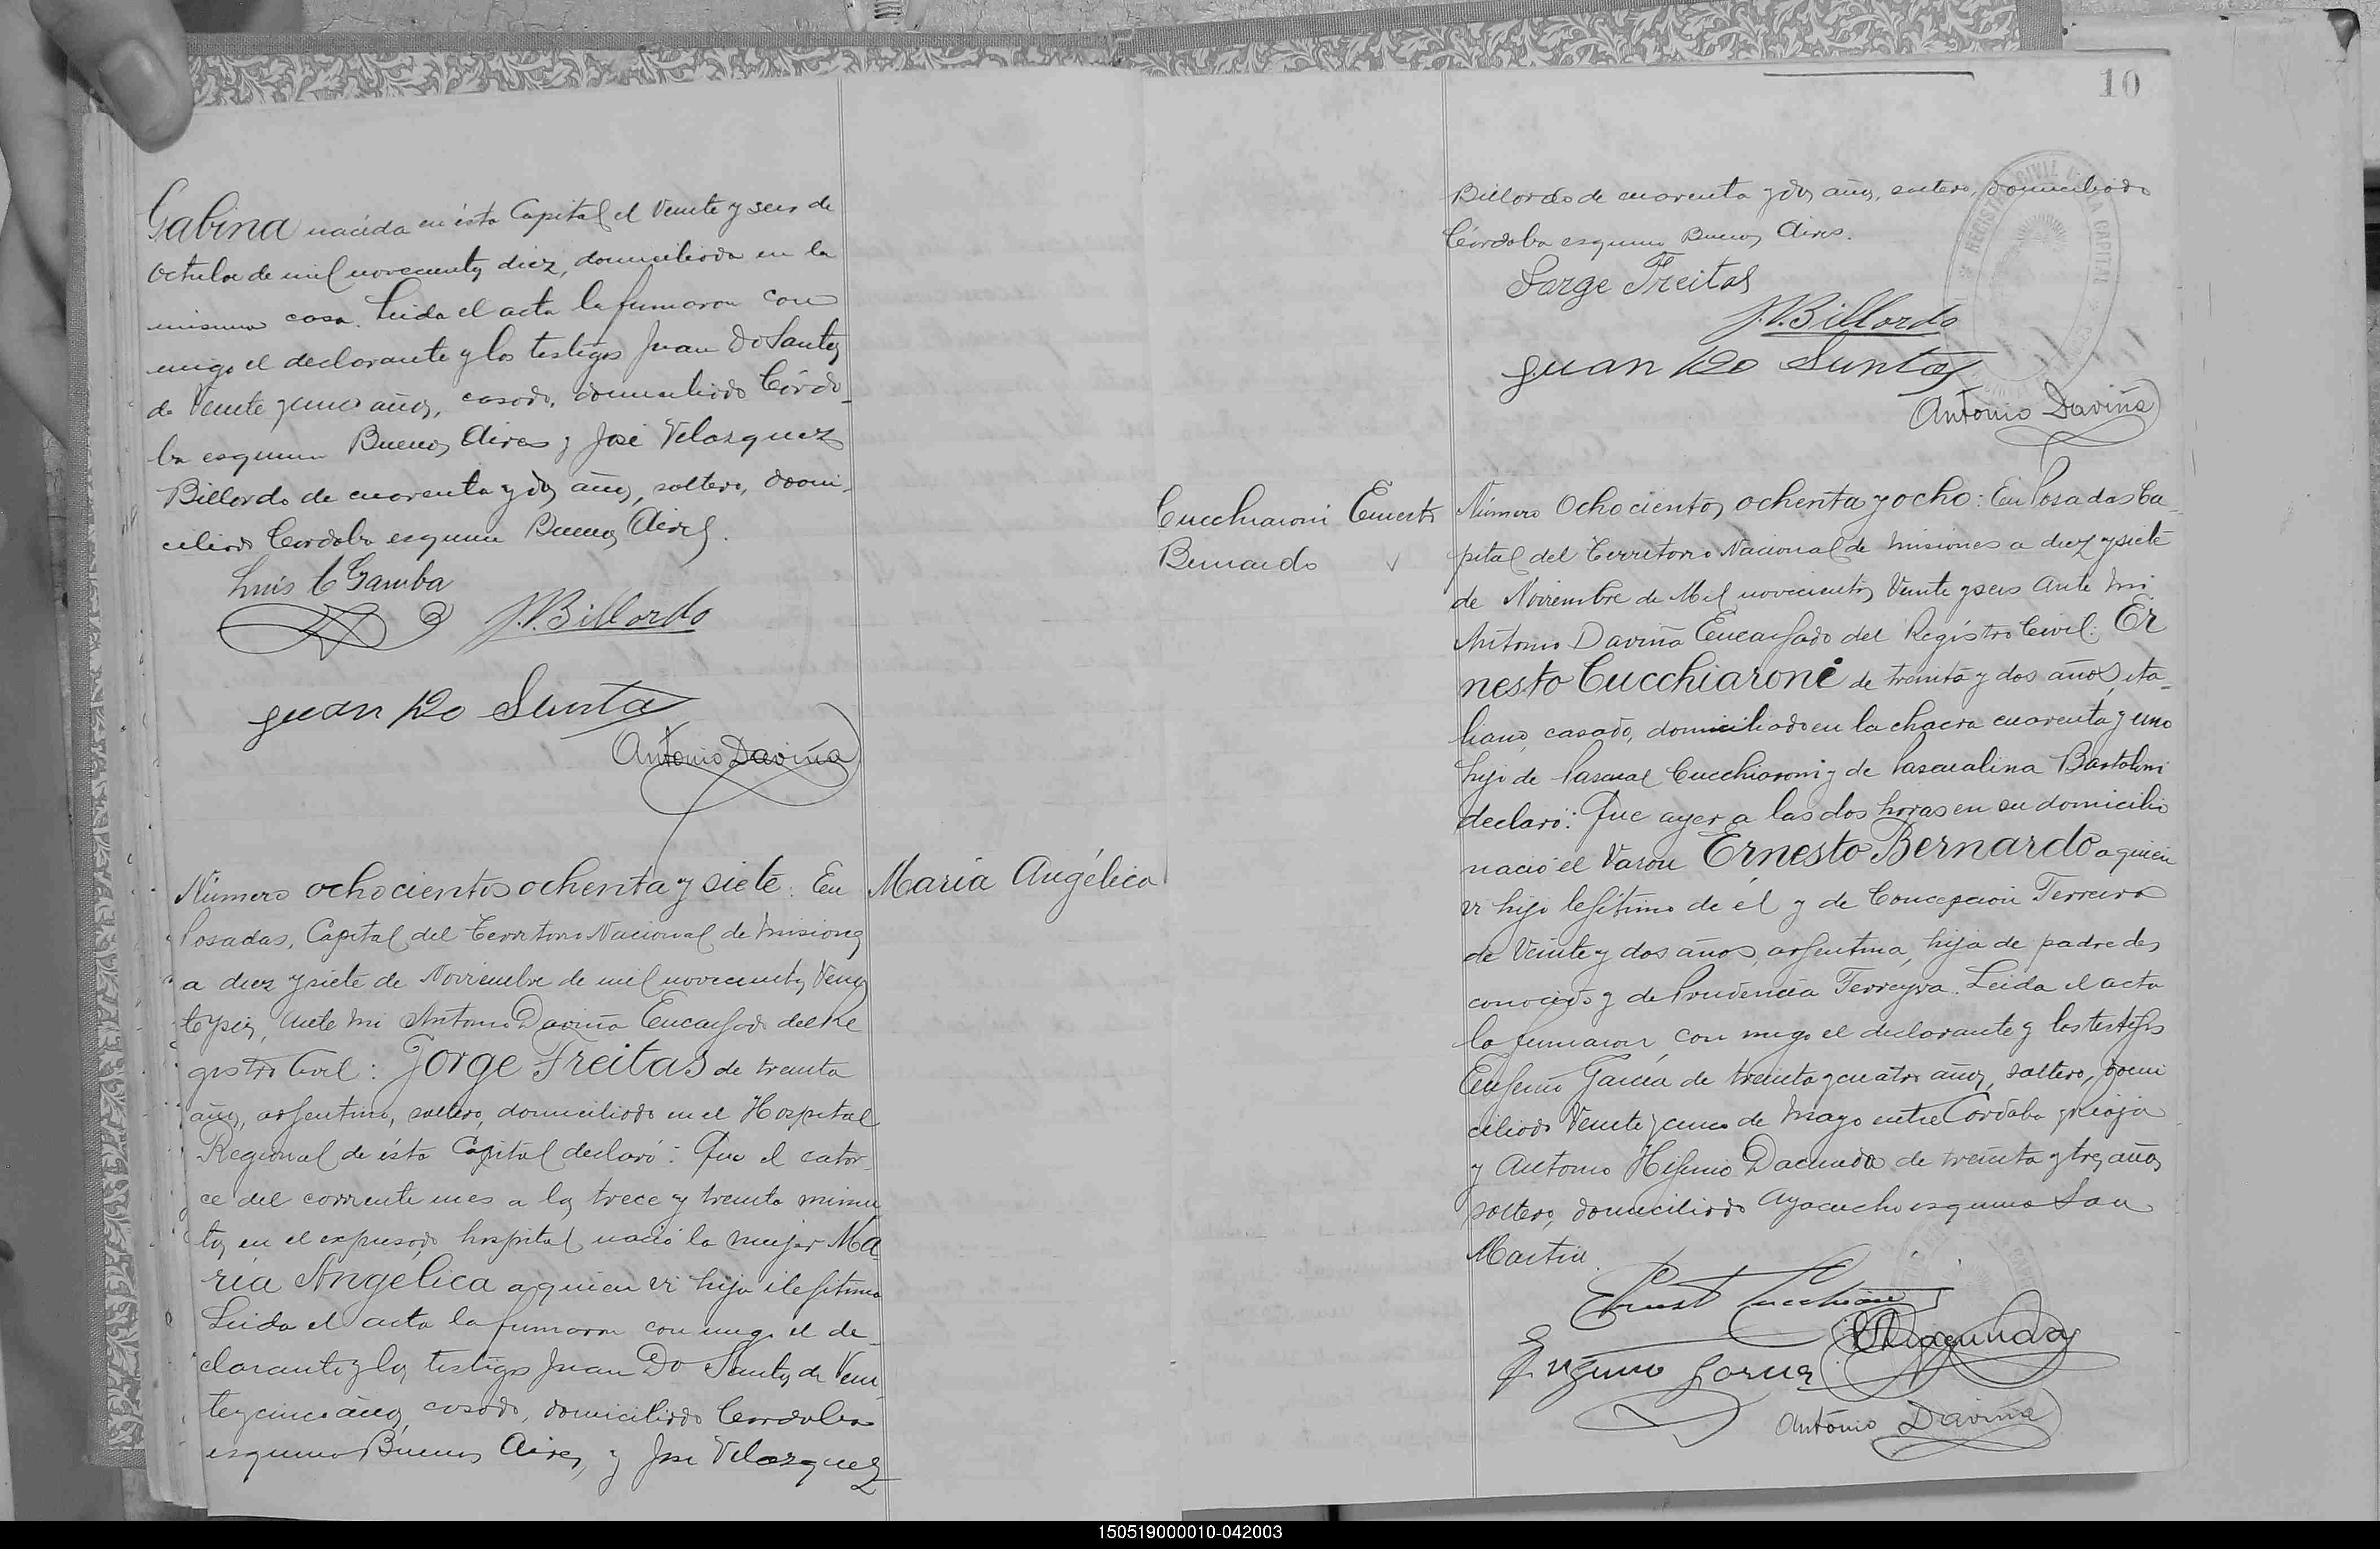 Gabina nacida en ésta Capital el Veinte y seis de
Octubre de mil novecientos diez, domiciliada en la
misma casa. Leida el acta la firmaron con
migo el declarante y los testigos Juan Do Santos
de Veinte y cinco años, casado, domiciliado Córdo-
ba esquina Buenos Aires y José Velazquez
Billordo de cuarenta y dos años, soltero, domi-
ciliado Cordoba esquina Buenos Aires.
Luis C Gamba
J.V.Billordo
Juan Do Santos
Antonio Daviña
Número ochocientos ochenta y siete: En
Posadas, Capital del Territorio Nacional de Misiones
a diez y siete de Noviembre de mil novecientos Vein
te y seis, Ante mi Antonio Daviña Encargado del Re
gistro Civil: Jorge Freitas de treinta
años, argentino, soltero, domiciliado en el Hospital
Regional de ésta Capital declaró: Que el cator-
ce del corriente mes a las trece y treinta minu
tos en el expresado hospital nació la mujer Ma-
ría Angélica a quien vi hija ilegítima
Leida el acta la firmaron con migo el de-
clarante y los testigos Juan Do Santos de Vein
te y cinco años, casado, domiciliado Cordoba
esquina Buenos Aires, y José Velazquez
María Angélica
10
Billordo de cuarenta y dos años, soltero, domiciliado
Córdoba esquina Buenos Aires.
REGISTRO CIVIL DE LA CAPITAL
Jorge Freitas
J.V.Billordo
Juan Do Santos
Antonio Daviña
Cucchiaroni Ernesto
Bernardo
Número Ochocientos ochenta y ocho: En Posadas Ca-
pital del Territorio Nacional de Misiones a diez y siete
de Noviembre de Mil novecientos Veinte y seis Ante Mi:
Antonio Daviña Encargado del Registro Civil: Er
nesto Cucchiaroni de treinta y dos años, ita-
liano, casado, domiciliado en la chacra cuarenta y uno
hijo de Pascual Cucchiaroni y de Pascualina Bartoloni
declaró: Que ayer a las dos horas en su domicilio
nació el Varon Ernesto Bernardo a quien
vi hijo legítimo de él y de Concepción Ferreira
de Veinte y dos años, argentina, hija de padre des
conocido y de Prudencia Ferreyra. Leida el acta
la firmaron con migo el declarante y los testigos
Eugenio García de treinta y cuatro años, soltero, domi
ciliado Veinte y cinco de Mayo entre Cordoba y Rioja
y Antonio Higinio Dacunda de treinta y tres años
soltero, domiciliado Ayacucho esquina San
Martin.
Ernesto Cucchiaroni
Eugenio Garcia
Antonio Daviña
150519000010-042003